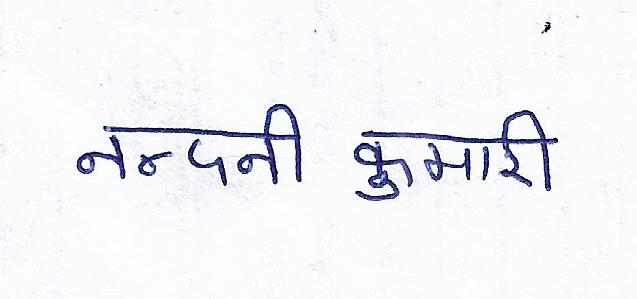 नन्दनी कुमारी